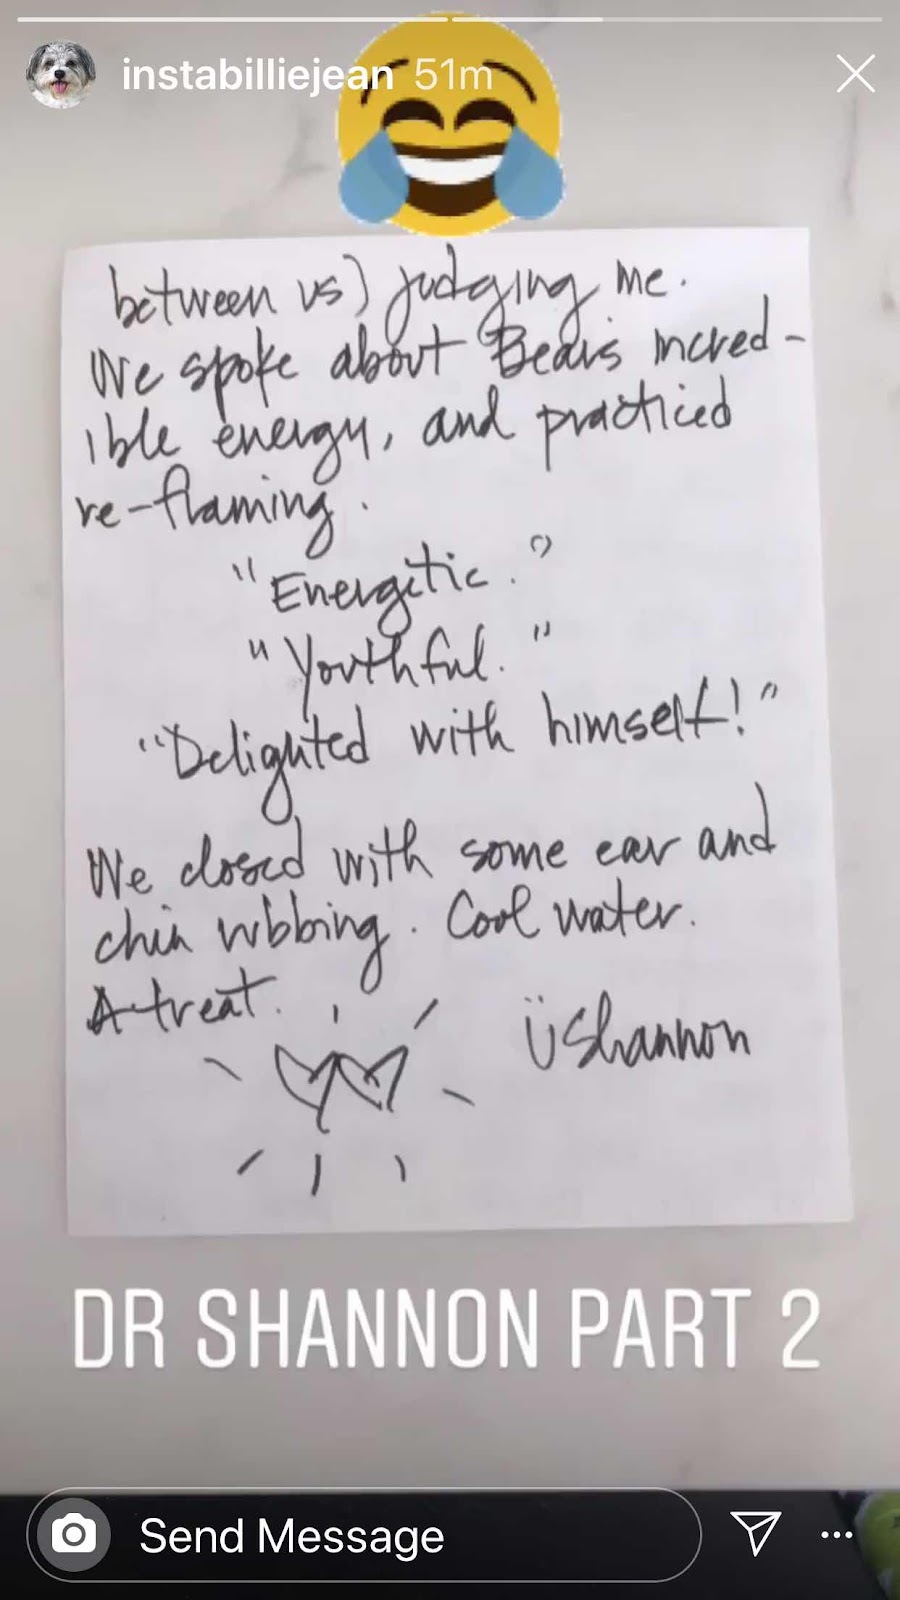 instabilliejean 51m
between us) judging me.
We spoke about Bear's incred-
ible energy, and practiced
re-flaming.
"Energetic."
"Youthful."
"Delighted with himself!"
We closed with some ear and
chin rubbing. Cool water.
A treat.
Ü Shannon
DR SHANNON PART 2
Send Message